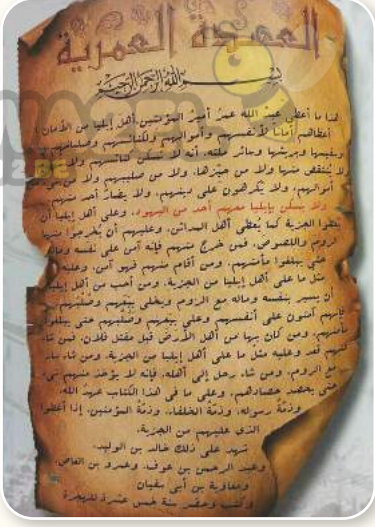 العهدة العمرية
بسم الله الرحمن الرحيم
هذا ما أعطى عبد الله عمر أمير المؤمنين أهل إيليا من الأمان
أعطاهم أماناً لأنفسهم وأموالهم ولكنائسهم وصلبانهم
وسقيمها وبريئها وسائر ملتها، أنه لا تسكن كنائسهم ولا
ولا ينتقص منها ولا من حيزها، ولا من صليبهم ولا من
أموالهم، ولا يكرهون على دينهم، ولا يضار أحد منهم
ولا يسكن بإيليا معهم أحد من اليهود، وعلى أهل إيليا أن
يعطوا الجزية كما يعطي أهل المدائن، وعليهم أن يخرجوا منها
الروم واللصوص، فمن خرج منهم فإنه آمن على نفسه وماله
حتى يبلغوا مأمنهم، ومن أقام منهم فهو آمن، وعليه
مثل ما على أهل إيليا من الجزية، ومن أحب من أهل إيليا
أن يسير بنفسه وماله مع الروم ويخلي بيعهم وصلبهم
فإنهم آمنون على أنفسهم وعلى بيعهم وصلبهم حتى يبلغوا
مأمنهم، ومن كان بها من أهل الأرض قبل مقتل فلان، فمن شاء
منهم قعد وعليه مثل ما على أهل إيليا من الجزية، ومن شاء سار
مع الروم، ومن شاء رجل إلى أهله، فإنه لا يؤخذ منهم شيء
حتى يحصد حصادهم، وعلى ما في هذا الكتاب عهد الله،
وذمة رسوله، وذمة الخلفاء، وذمة المؤمنين، إذا أعطوا
الذي عليهم من الجزية.
شهد على ذلك خالد بن الوليد،
وعبد الرحمن بن عوف، وعمرو بن العاص،
ومعاوية بن أبي سفيان
وكتب وحضر سنة خمس عشرة للهجرة